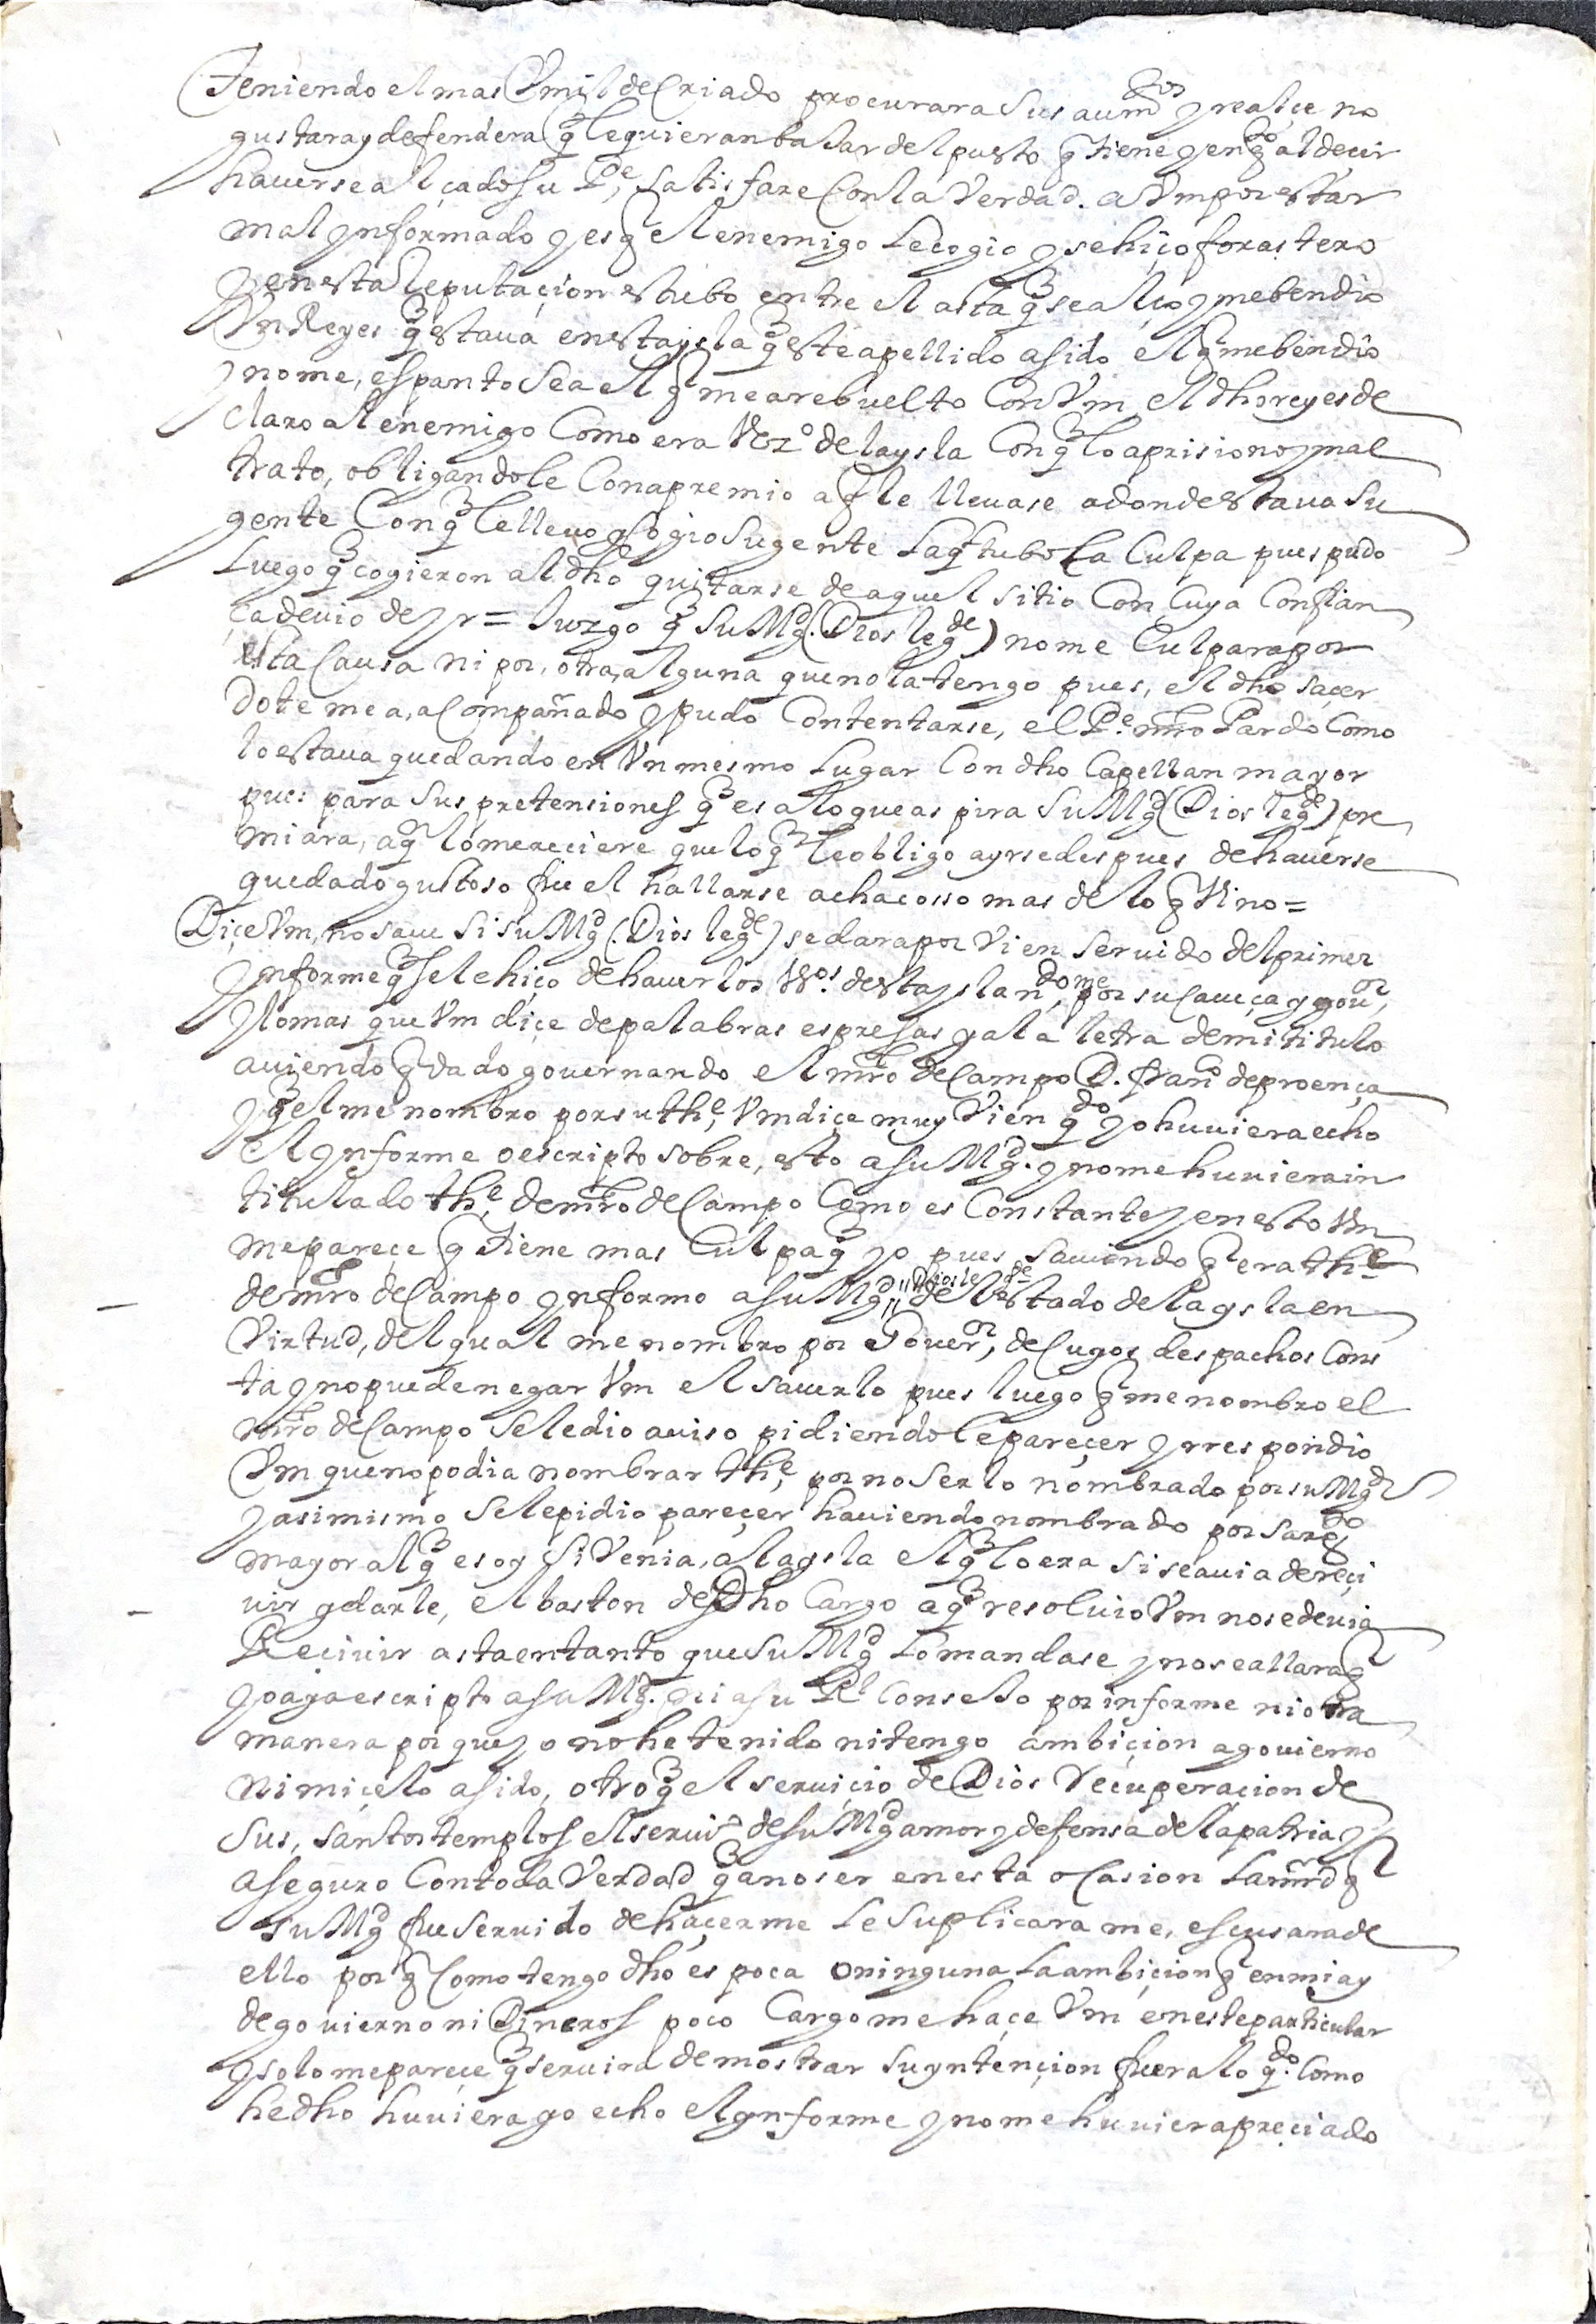 Teniendo el mas Vmilde Criado procurara Sus aumtos y realçe no
gustara y defendera q̃ le quieran baJar del puesto q̃ tiene y en qto al decir
hauerse alçado su Pe, satisfare Con la Verdad. a Vm por estar
mal ynformado y es q̃ el enemigo le cogio y se hiço forastero
y en esta Reputaçion estubo entre el asta q̃ se alço y me bendio
Vn Reyes q̃ estaua en esta ysla q̃ este apellido a sido el q̃ me bendio
y no me, espanto sea el q̃ me a rebuelto Con Vm el dho reyes de
claro al enemigo Como era Vezo de la ysla Con q̃ lo aprisiono y mal
trato, obligandole Con apremio a q̃ le lleuase a donde estaua Su
gente Con q̃ le lleuo y cogio su gente la q̃ tubo la Culpa pues pudo
luego q̃ cogieron al dho quitarse de aquel sitio Con Cuya Confian
ça deuio de yr = Juzgo q̃ Su Mgd. (Dios le gde) no me Culpara por
esta Causa ni por, otra, alguna que no la tengo pues, el dho saçer
dote me a, aCompañado y pudo Contentarse, el Pe. mro Pardo Como
lo estaua quedando en Vn mesmo lugar Con dho Capellan mayor
pues para Sus pretensiones q̃ es a lo que aspira Su Mgd (Dios le gde) pre
miara, a q̃ lo mereciere que lo q̃ le obligo a yrse despues de hauerse
quedado gustoso fue el hallarse achacosso mas de lo q̃ Vino =
Diçe Vm, no saue si su Mgd (Dios le gde) se dara por Vien seruido del primer
ynforme q̃ se le hiço de hauer los Vos. desta ysla ndome, por su Caueça y gour,
y lo mas que Vm diçe de palabras espresas y a la letra de mi titulo
auiendo q̃dado gouernando el mro de Campo D. Franco de proença
y q̃ el me nombro por su the, Vm diçe muy Vien q̃do yo huuiera echo
el ynforme o escripto sobre, esto a su Mgd. y no me huuiera in
titulado the, de mro de Campo Como es Constante y en esto Vm
me pareçe q̃ tiene mas Culpa q̃ yo pues sauiendo q̃ era the
de mro de Campo ynformo a su Mgd, "Dios le gde" del estado de la ysla en
Virtud, del qual me nombro por Gouer, de Cuyos despachos Cons
ta y no puede negar Vm el sauerlo pues luego q̃ me nombro el
mro de Campo se le dio auiso pidiendole pareçer y rrespondio
Vm que no podia nombrar the, por no serlo nombrado por su Mgd
y asimismo se le pidio pareçer hauiendo nombrado por sargto
mayor al q̃ es oy si Venia, a la ysla el q̃ lo era si se auia de reçi
uir y darle, el baston de Dho Cargo a q̃ resoluio Vm no se deuia
Reçiuir asta en tanto que su Mgd lo mandase y no se allara q̃
yo aya escripto a su Mgd. ni a su Rl ConseJo por informe ni otra
manera por que yo no he tenido ni tengo ambiçion a gouierno
ni mi çelo a sido, otro q̃ el seruiçio de Dios Recuperacion de
Sus, santos templos el seruio de su Mgd amor y defensa de la patria y
aseguro Con toda Verdad q̃ a no ser en esta oCasion la mrd q̃
su Mgd fue seruido de haçerme le suplicara me, escusara de
ello por q̃ Como tengo dho es poca o ninguna la ambiçion q̃ en mi ay
de gouierno ni Dineros poco Cargo me haçe Vm en este particular
y solo me pareçe q̃ seruira de mostrar su yntençion fuera lo q̃do. Como
he dho huuiera yo echo el ynforme y no me huuiera preçiado